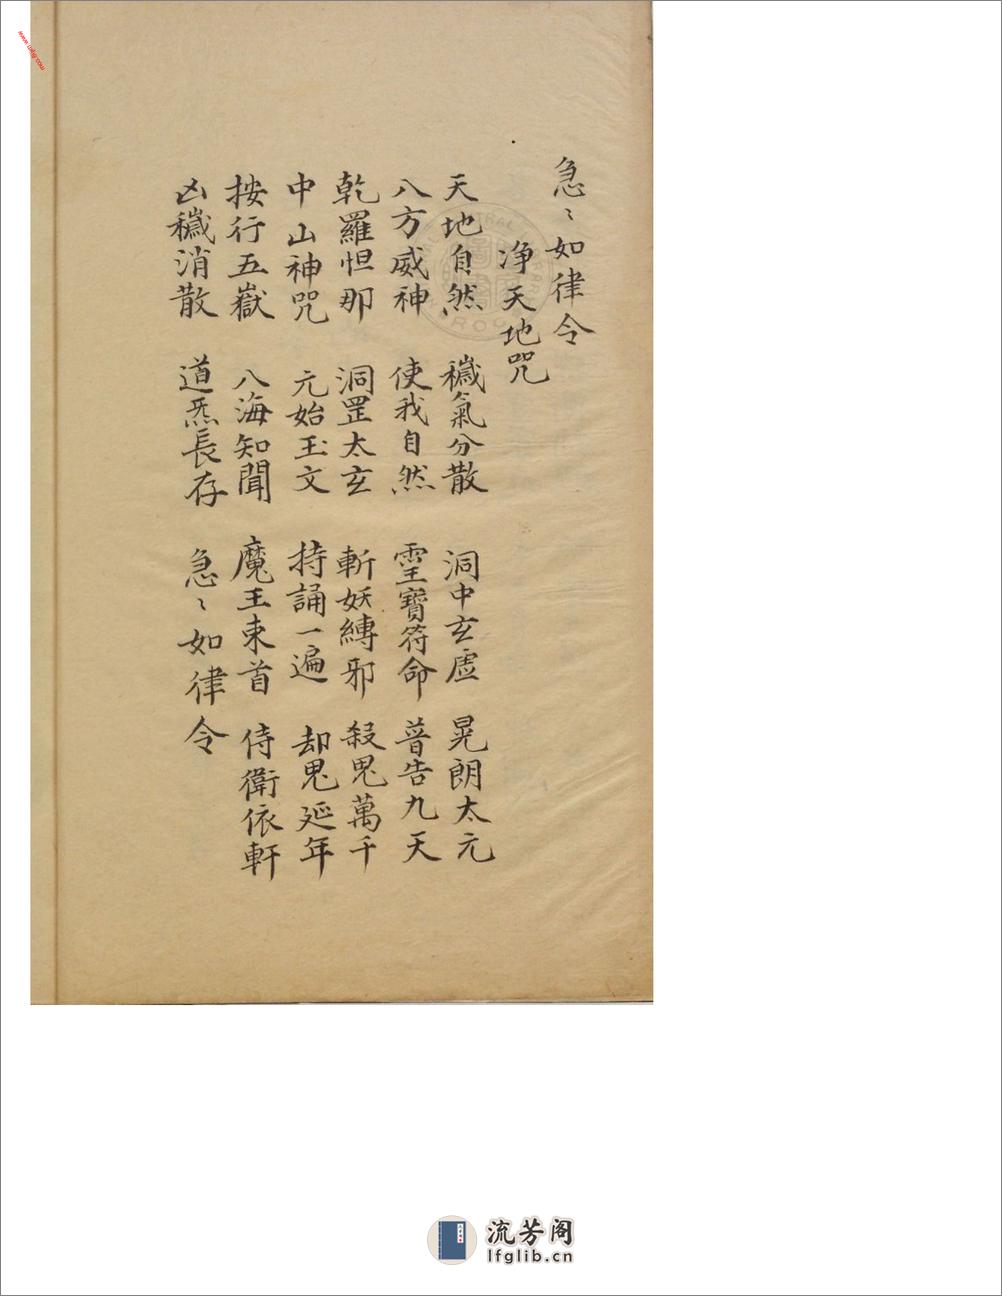 急〻如律令
净天地咒
天地自然 穢氣分散 洞中玄虛 晃朗太元
八方威神 使我自然 霊寶符命 普告九天
乾羅怛那 洞罡太玄 斬妖縛邪 殺鬼萬千
中山神咒 元始玉文 持誦一遍 却鬼延年
按行五嶽 八海知聞 魔王束首 侍衛依軒
凶穢消散 道炁長存 急〻如律令
流芳阁
lfglib.cn